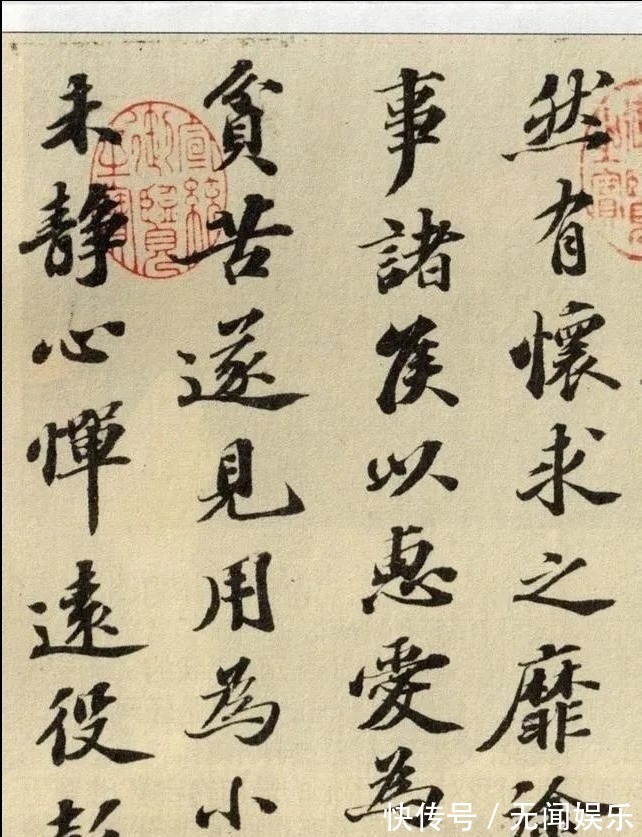 然有懷求之靡途
事諸侯以惠愛為
貧苦遂見用為小
未靜心憚遠役彭
宣統御覽之寶
快传号/无闻娱乐